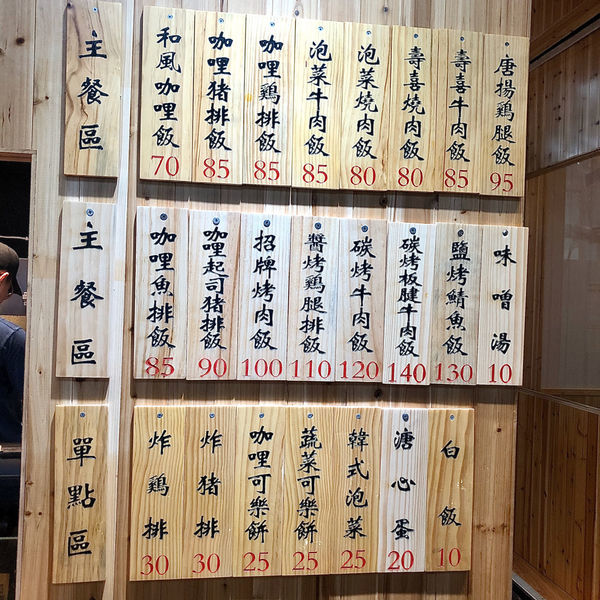 主餐區
和風咖哩飯 70
咖哩猪排飯 85
咖哩鷄排飯 85
泡菜牛肉飯 85
泡菜燒肉飯 80
壽喜燒肉飯 80
壽喜牛肉飯 85
唐揚鷄腿飯 95
主餐區
咖哩魚排飯 85
咖哩起司猪排飯 90
招牌烤肉飯 100
醬烤鷄腿排飯 110
碳烤牛肉飯 120
碳烤板腱牛肉飯 140
鹽烤鯖魚飯 130
味噌湯 10
單點區
炸鷄排 30
炸猪排 30
咖哩可樂餅 25
蔬菜可樂餅 25
韓式泡菜 25
溏心蛋 20
白飯 10